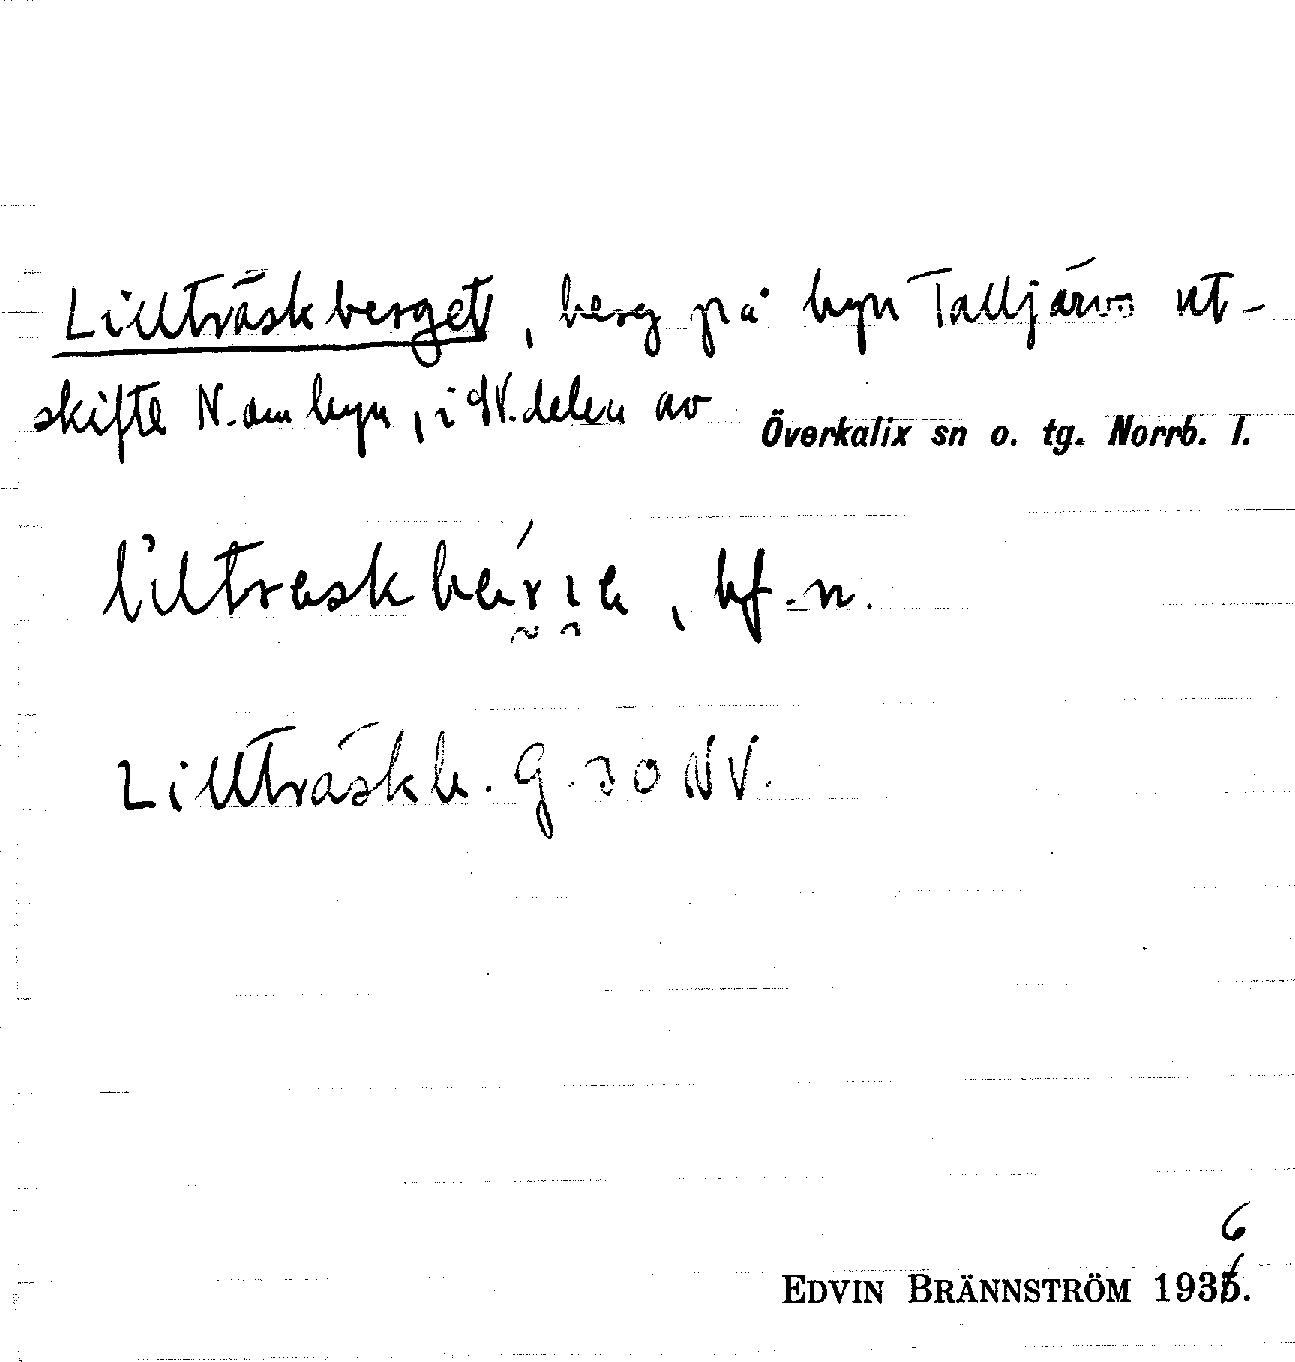 Lillträskberget, berg på byn Talljärvs ut-
skifte N. om byn, i N. delen av Överkalix sn o. tg. Norrb. l.
bf. n.
Lillträskb. G. 30 NV.
6
EDVIN BRÄNNSTRÖM 1935.